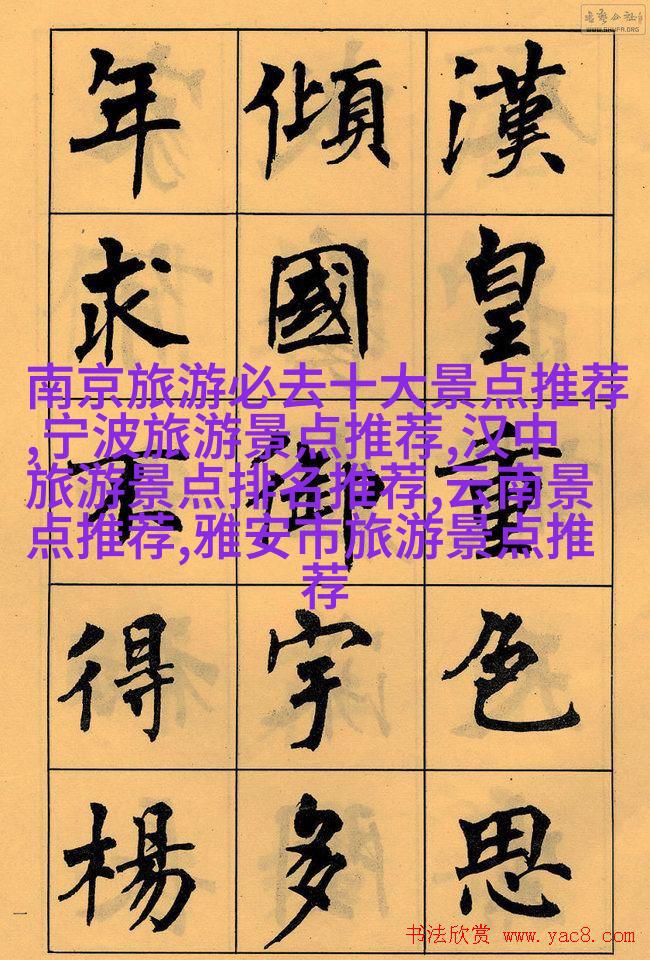 漢皇重色思
傾國御宇多
年求不得楊
南京旅游必去十大景点推荐
,宁波旅游景点推荐,汉中
旅游景点排名推荐,云南景
点推荐,雅安市旅游景点推
荐
一
WWW.SHUFA.ORG
书法欣赏 www.yac8.com